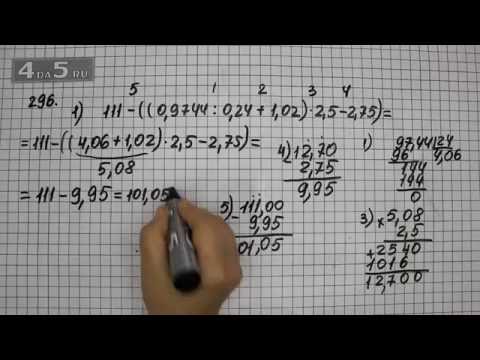 4DA5.RU
5 1 2 3 4
296. 1) 111-((0,9744:0,24+1,02)·2,5-2,75)=
=111-((4,06+1,02)·2,5-2,75)=
5,08
=111-9,95=101,05
4) 12,70
2,75
9,95
1) 97,44 24
96 4,06
144
144
0
5) 111,00
- 9,95
101,05
3) × 5,08
2,5
+ 2540
1016
12,700